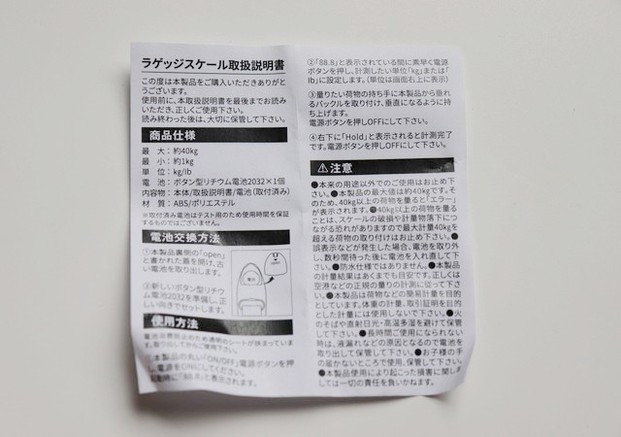 ラゲッジスケール取扱説明書
この度は本製品をご購入いただきありがと
うございます。
使用前に、本取扱説明書を最後までお読み
いただき、正しくご使用下さい。
読み終わった後は、大切に保管して下さい。
商品仕様
最 大：約40kg
最 小：約1kg
単 位：kg/lb
電 池：ボタン型リチウム電池2032×1個
内容物：本体/取扱説明書/電池（取付済み）
材 質：ABS/ポリエステル
※取付済み電池はテスト用のため使用時間を保証
するものではございません。
電池交換方法
①本製品裏側の「open」
と書かれた蓋を開け、古
い電池を取り出します。
②新しいボタン型リチウ
ム電池2032を準備し、正
しい向きでセットします。
使用方法
電池消費防止のため透明のシートが挟まっていま
す。取り出してからご使用下さい。
①本製品の丸い「ON/OFF」電源ボタンを押
し、電源をONにしてください。
起動時に「88.8」と表示されます。
②「88.8」と表示されている間に素早く電源
ボタンを押し、計測したい単位「kg」または「
lb」に設定します。（単位は画面右上に表示）
③量りたい荷物の持ち手に本製品から垂れ
るバックルを取り付け、垂直になるように持
ち上げます。
電源ボタンを押しOFFにして下さい。
④右下に「Hold」と表示されると計測完了
です。電源ボタンを押しOFFにして下さい。
⚠注意
●本来の用途以外でのご使用はお止め下
さい。●本製品の最大値は約40kgです。そ
のため、40kg以上の荷物を量ると「エラー」
が表示されます。●40kg以上の荷物を量る
ことは、スケールの破損や計量物落下につ
ながる恐れがありますので最大計量40kgを
超える荷物の取り付けはお止め下さい。●
誤表示などが発生した場合、電池を取り外
し、数秒間待った後に電池を入れ直して下
さい。●防水仕様ではありません。●本製品
の計量結果はあくまでも目安です。正しくは
空港などの正規の量りの計測に従って下さ
い。●本製品は荷物などの簡易計量を目的
としています。体重の計量、取引証明を目的
とした計量には使用しないで下さい。●火
のそばや直射日光・高温多湿を避けて保管
して下さい。●長時間ご使用にならない
時は、液漏れなどの原因となるので電池を
取り出して保管して下さい。●お子様の手
の届かないところで使用、保管して下さい。
●本製品使用により起こった損害に関しま
しては一切の責任を負いかねます。